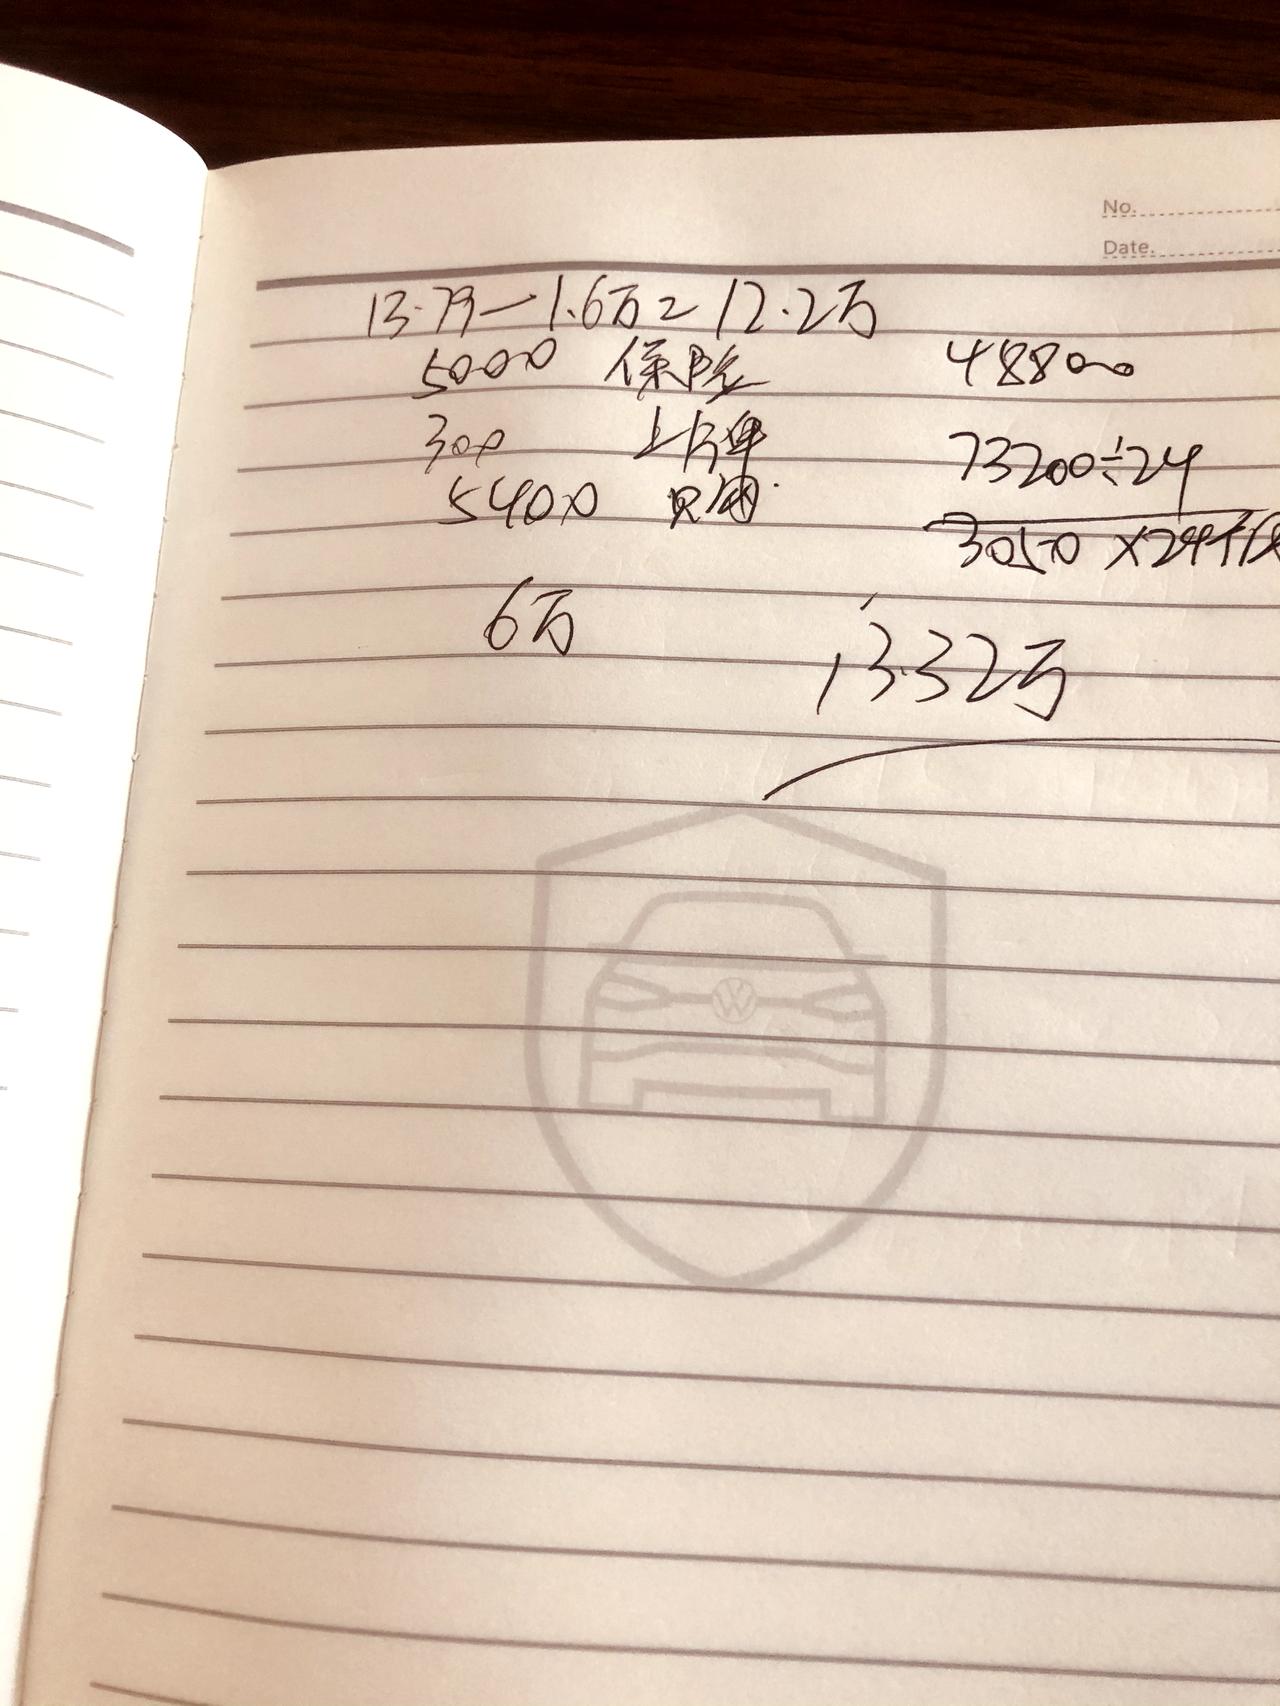 No.
Date.
13.79-1.6万=12.2万
5000 保险
48800
300 上户
73200÷24
5400
3050 ×24
6万
13.32万